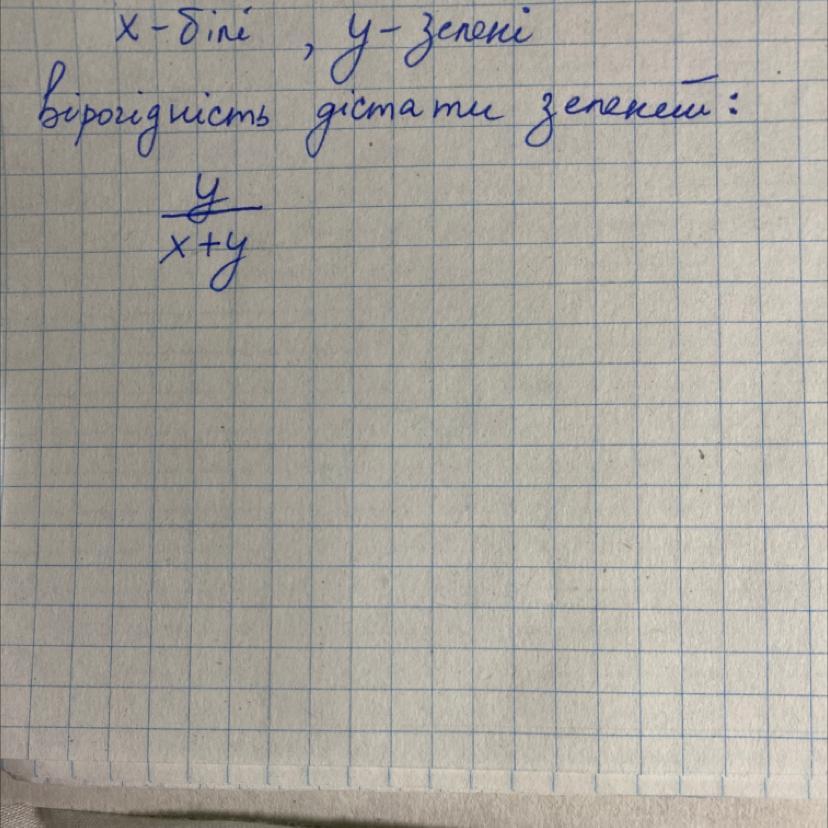 x - білі , y - зелені
вірогідність дістати зелений:
y
x + y